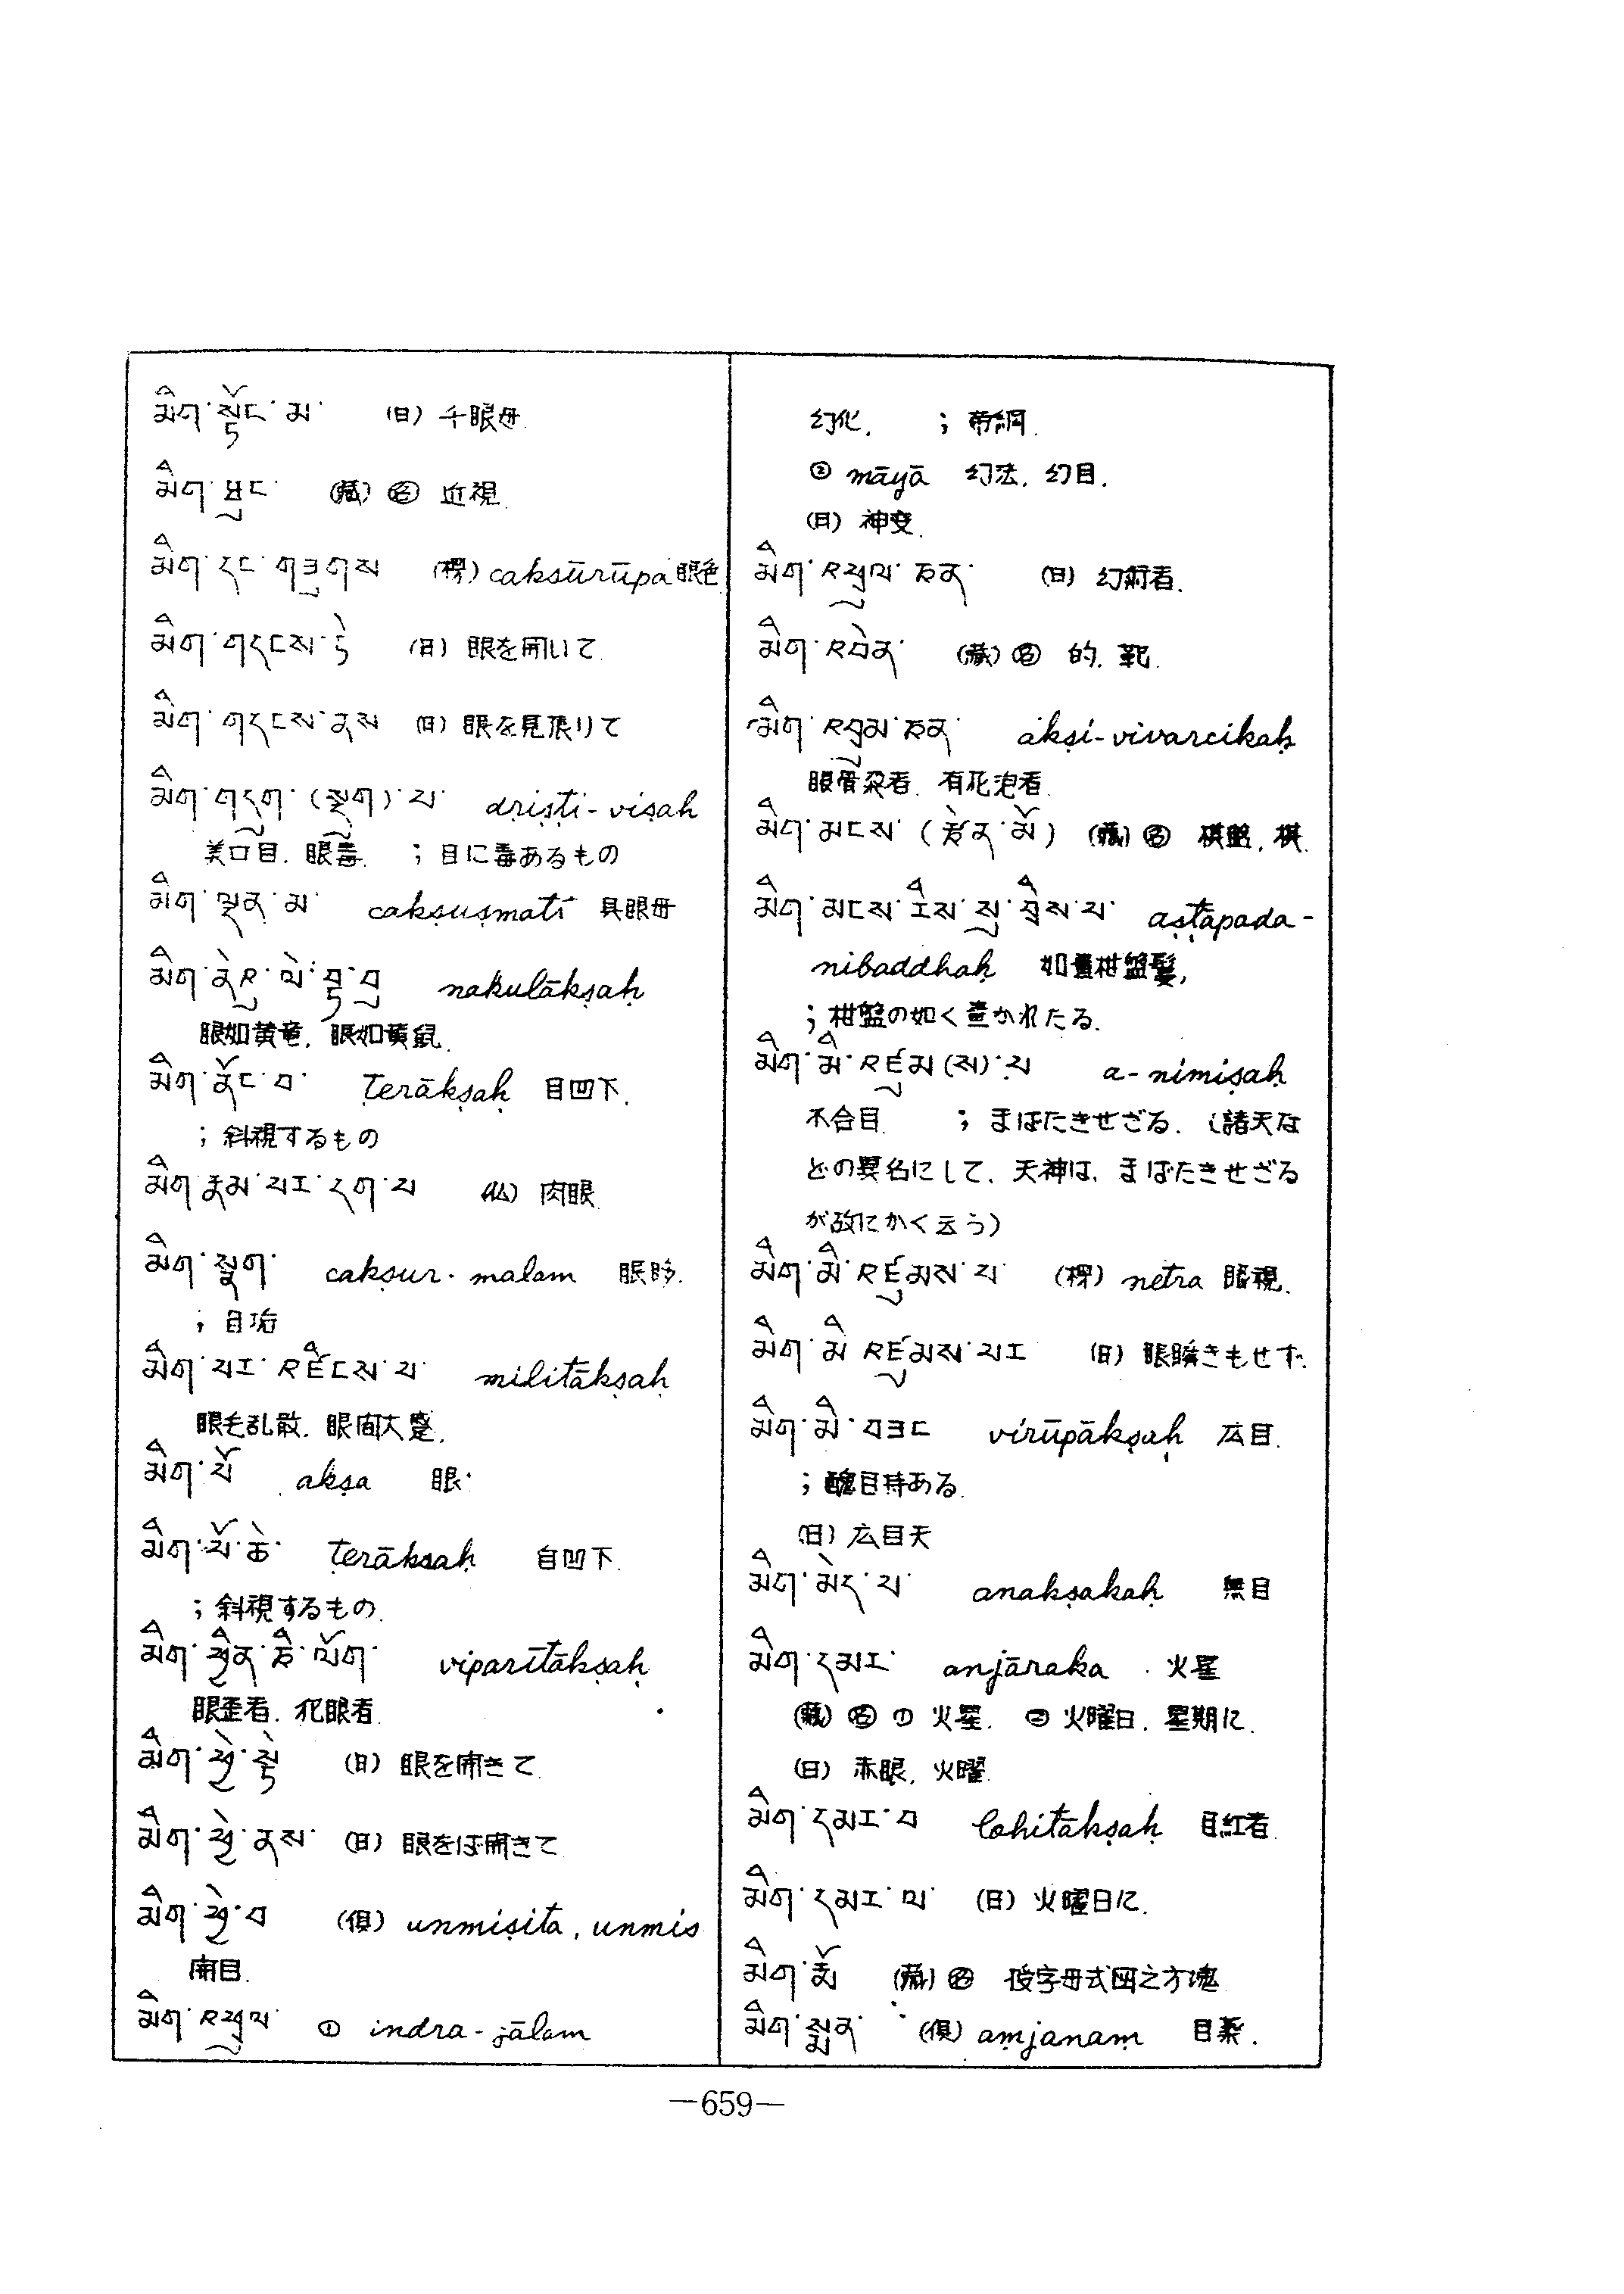 མིག་སྟོང་མ་ (日) 千眼母.
མིག་ཐུང་ (蔵) 名 近視.
མིག་དང་གཟུགས (樗) caksūrūpa 眼色
མིག་གདངས་ཏེ (日) 眼を開いて
མིག་གདངས་ནས (日) 眼を見張りて
མིག་གདུག་(སྡུག)་པ་ dṛiṣṭi-viṣaḥ
美口目. 眼毒. ; 目に毒あるもの
མིག་ལྡན་མ་ cakṣuṣmatī 具眼母
མིག་ནེའུ་ལེ་ལྟ་བུ nakulākṣaḥ
眼如黄竜. 眼如黄鼠.
མིག་ནོང་བ་ ṭerākṣaḥ 目凹下.
; 斜視するもの
མིག་རྣམ་པར་དག་པ (仏) 肉眼
མིག་སྣག་ cakṣur-malam 眼眵.
; 目垢
མིག་པར་འཛིངས་པ་ militākṣaḥ
眼毛乱散. 眼間大蹙.
མིག་པོ akṣa 眼
མིག་པོ་ཆེ་ ṭerākṣaḥ 自凹下.
; 斜視するもの.
མིག་ཕྱིན་ཅི་ལོག་ viparītākṣaḥ
眼歪者. 犯眼者.
མིག་ཕྱེ་སྟེ (日) 眼を開きて
མིག་ཕྱེ་ནས་ (日) 眼をば開きて
མིག་ཕྱེ་བ (倶) unmiṣita, unmis
開目.
མིག་འཕྲུལ་ ① indra-jālam
幻化. ; 帝網.
② māyā 幻法. 幻目.
(日) 神変.
མིག་འཕྲུལ་ཅན་ (日) 幻術者.
མིག་འབེན་ (蔵) 名 的. 靶.
མིག་འབྲུམ་ཅན་ akṣi-vivarcikaḥ
眼骨朶者. 有花泡者.
མིག་མངས་(རྩེན་མོ) (蔵) 名 棋盤. 棋.
མིག་མངས་རིས་སུ་བྲིས་པ་ aṣṭāpada-
nibaddhaḥ 如畫柑盤髪,
; 柑盤の如く畫かれたる.
མིག་མི་འཛུམ(ས)་པ a-nimiṣaḥ
不合目 ; まばたきせざる. (諸天な
どの異名にして、天神は、まばたきせざる
が故にかく云う)
མིག་མི་འཛུམས་པ་ (樗) netra 眼視.
མིག་མི་འཛུམས་པར (日) 眼瞬きもせず.
མིག་མི་བཟང virūpākṣaḥ 広目.
; 醜目持ある.
(日) 広目天
མིག་མེད་པ་ anakṣakaḥ 無目
མིག་དམར་ anjāraka 火星
(蔵) 名 ① 火星. ② 火曜日. 星期に.
(日) 赤眼. 火曜.
མིག་དམར་བ lohitākṣaḥ 目紅者.
མིག་དམར་ལ་ (日) 火曜日に.
མིག་རྨོ (蔵) 名 按字母式図之方塊
མིག་སྨན་ (倶) aṃjanaṃ 目薬.
—659—